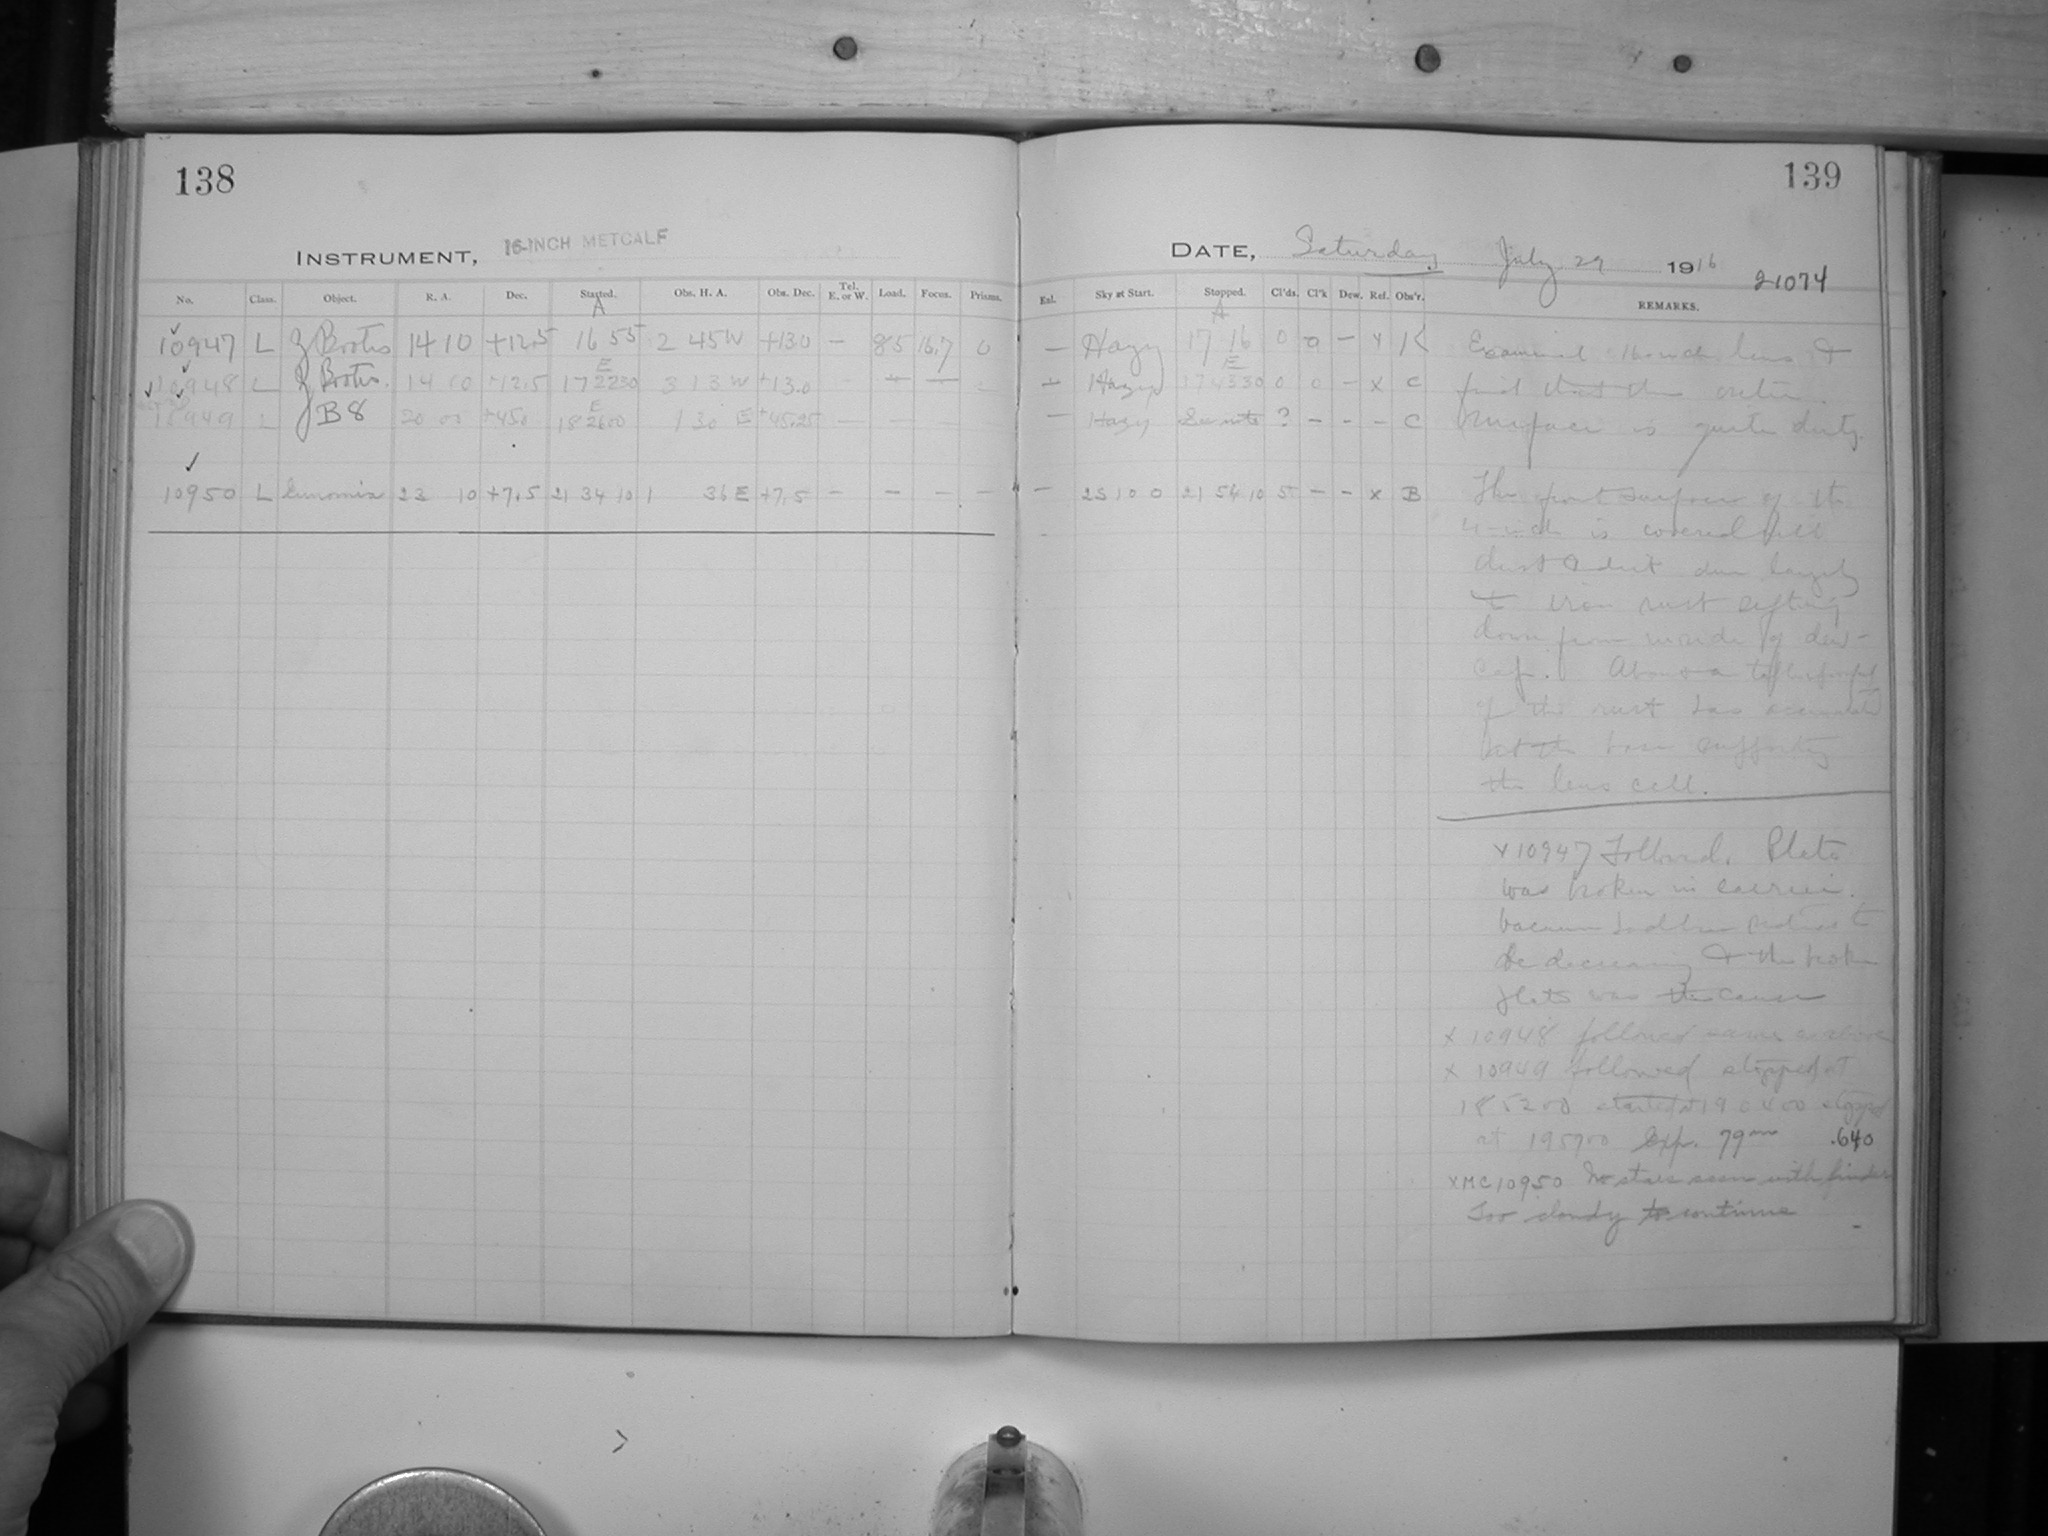 138
INSTRUMENT, 16-INCH METCALF
No. Class. Object. R. A. Dec. Started. Obs. H. A. Obs. Dec. Tel. E. or W. Load. Focus. Prisms.
A
10947 L g Bootis 14 10 +12.5 16 55 2 45 W +13.0 - 85 16.7 0
E
10948 L g Bootis. 14 10 +12.5 17 22 30 3 13 W +13.0 - - - -
E
10949 L g B8 20 00 +45.0 18 26 00 1 30 E +45.25 - - - -
10950 L Eunomia 23 10 +7.5 21 34 10 1 36 E +7.5 - - - -
139
DATE, Saturday July 29 1916
21074
Ext. Sky at Start. Stopped. Cl'ds. Cl'k Dew. Ref. Obs'r. REMARKS.
A
- Hazy 17 16 0 0 - x K
E
- Hazy 17 43 30 0 0 - x C
- Hazy See note ? - - - C
- 25 10 0 21 54 10 5 - - x B
Examined 16 inch lens &
find that the outer
surface is quite dirty.
The front surface of the
is covered with
dust & dirt due largely
to iron rust sifting
down from inside of dew-
cap. About a
of the rust has accumulated
at the base supporting
the lens cell.
x 10947 Followed. Plate
was broken in carrier.
Vacuum
be decreasing & the broken
plate was the cause
x 10948 followed same as above
x 10949 followed stopped at
18 52 00 started at 19 04 00 stopped
at 19 57 00 Exp. 79m .640
x MC 10950 No stars seen with finder
Too cloudy to continue